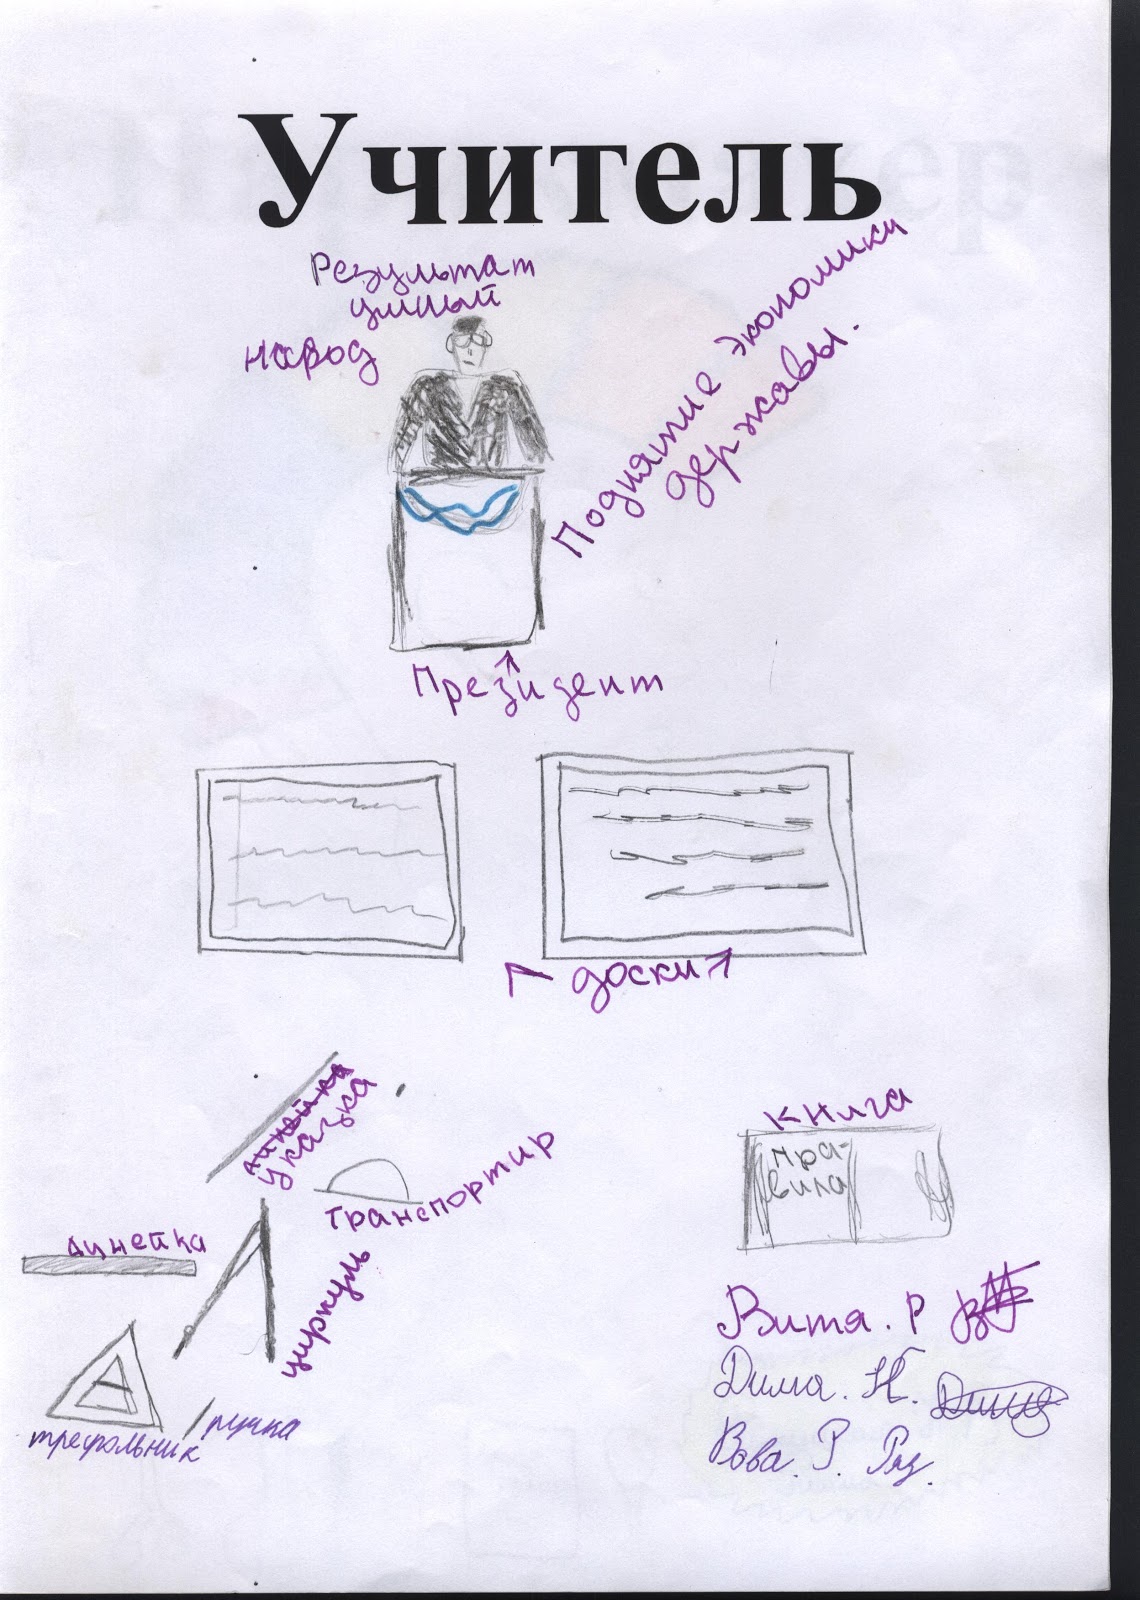 Учитель
Результат
умный
народ
Поднятие экономики
державы.
Президент
доски
линейка
указка
транспортир
линейка
циркуль
треугольник
ручка
книга
пра-
вила
Витя. Р
Дима. Н.
Вова. Р.